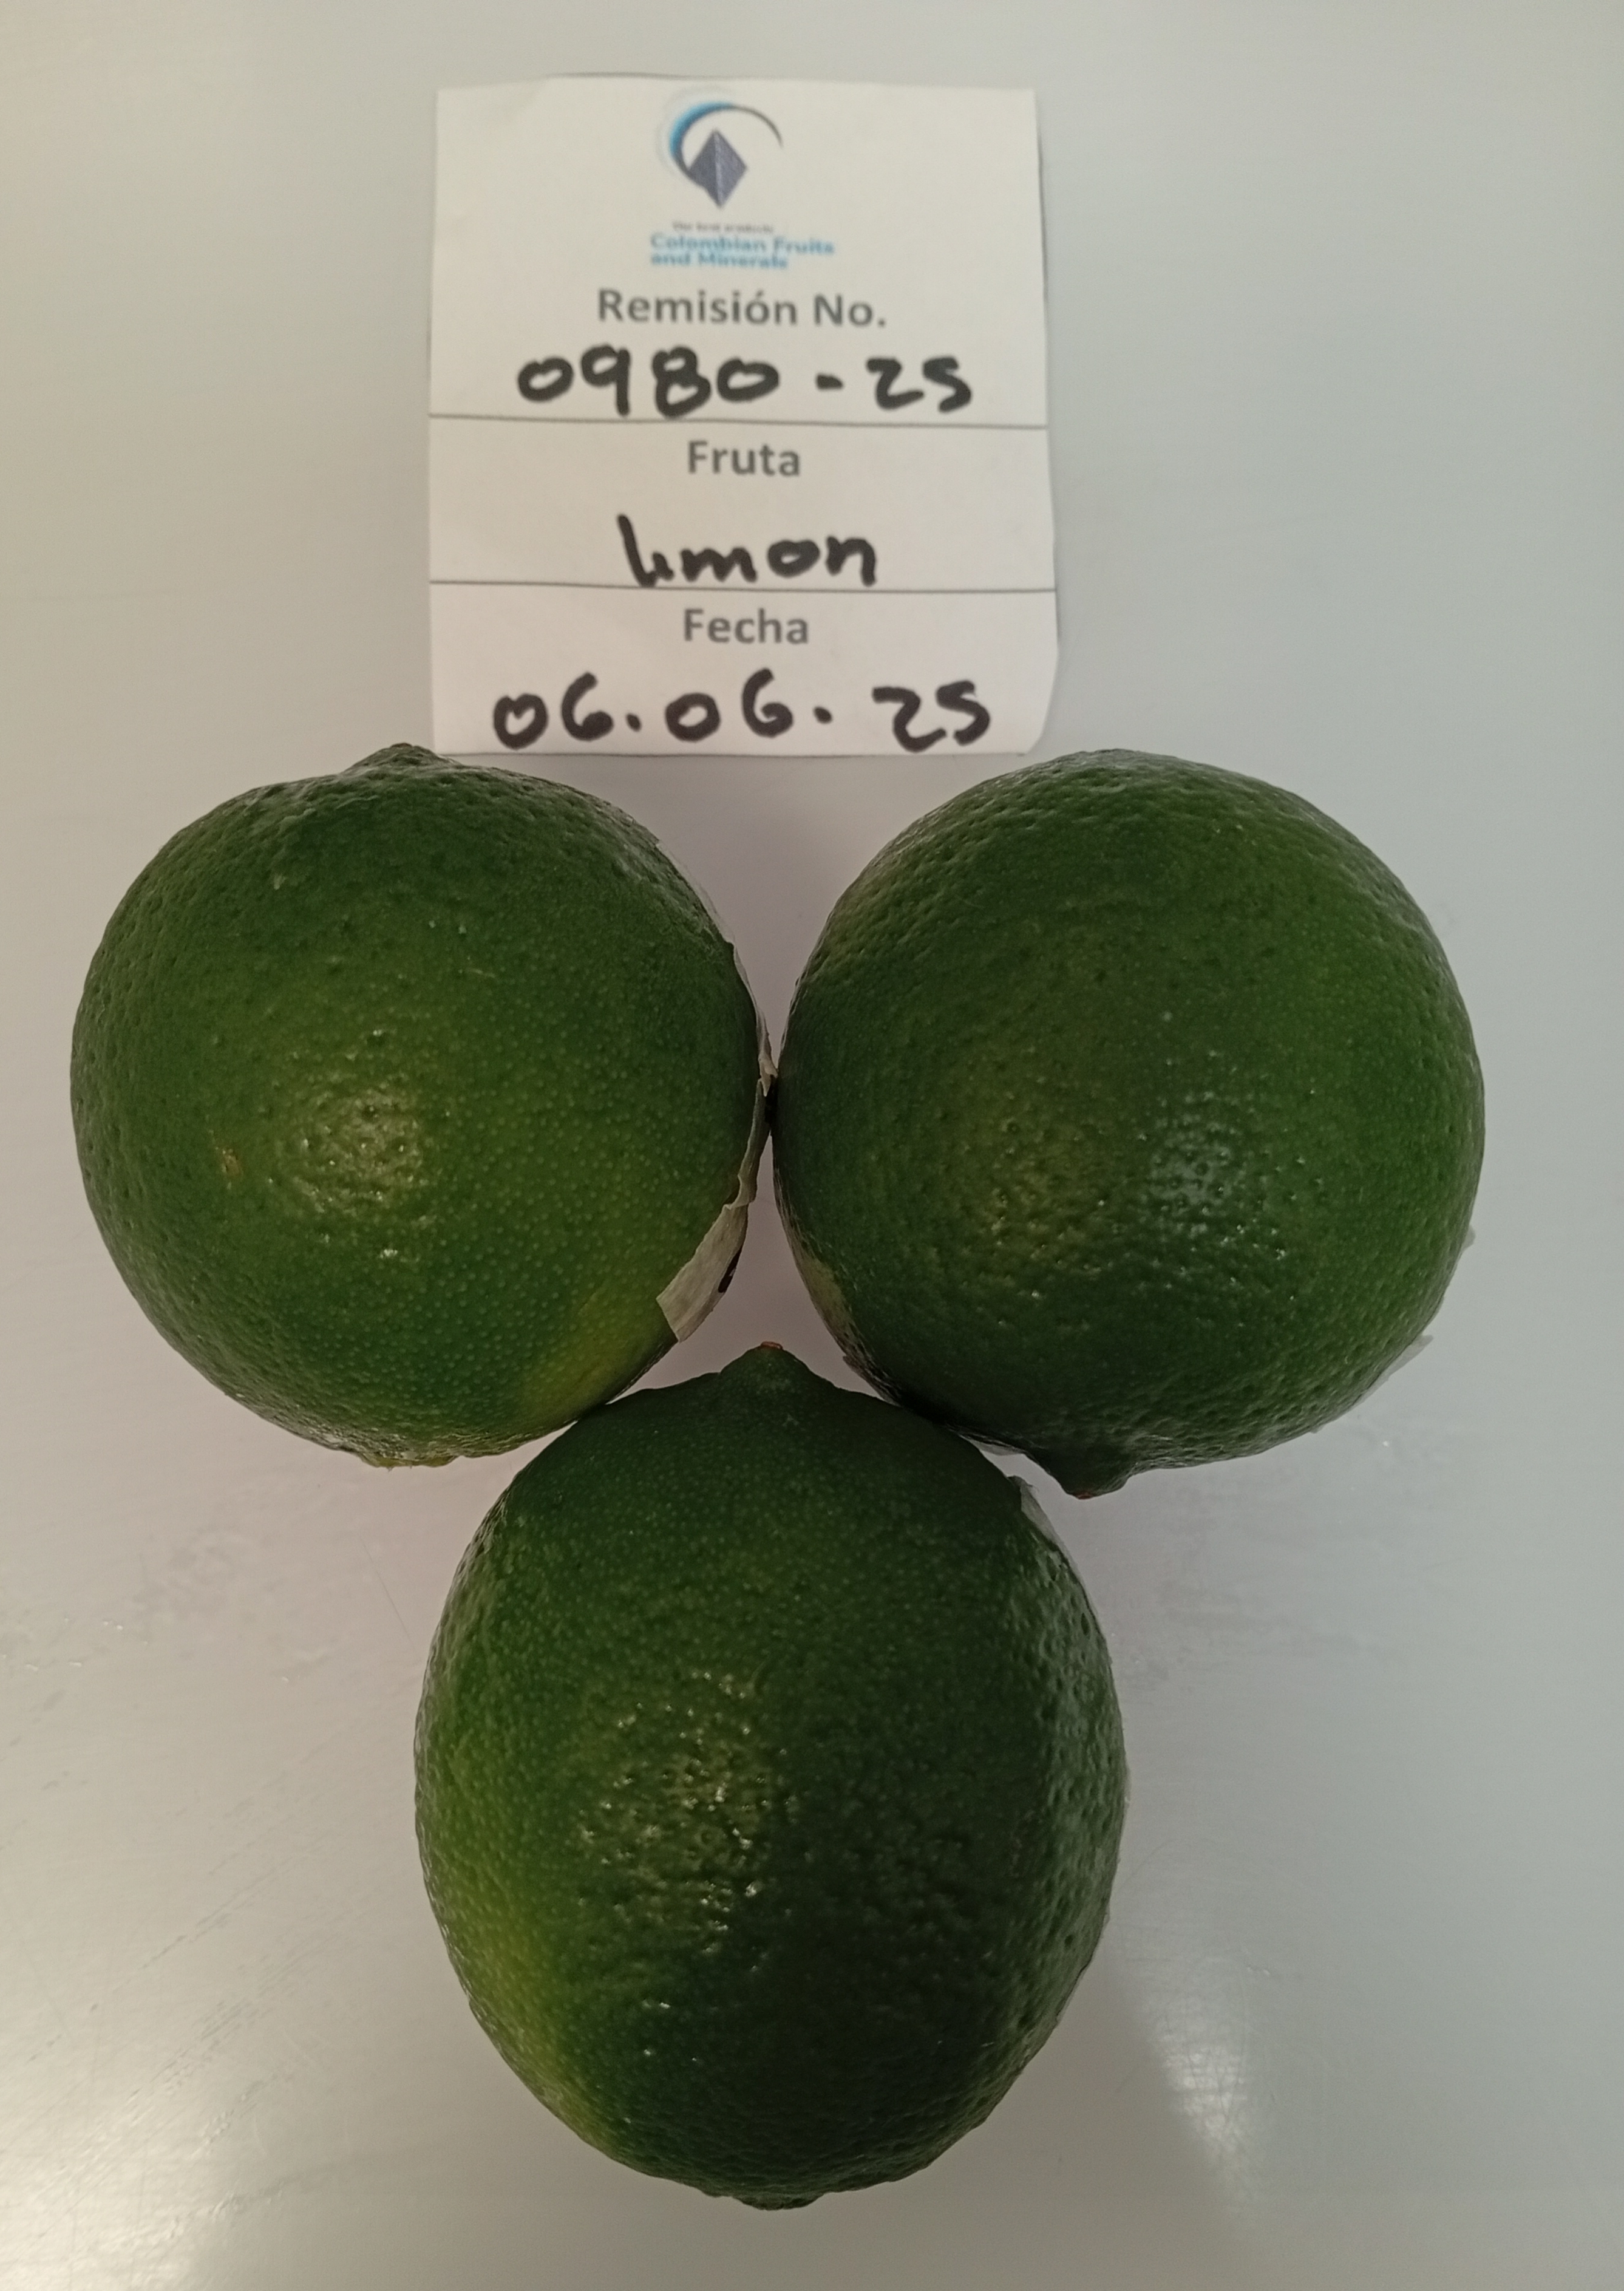 The best products
Colombian Fruits
and Minerals
Remisión No.
0980-25
Fruta
limon
Fecha
06.06.25